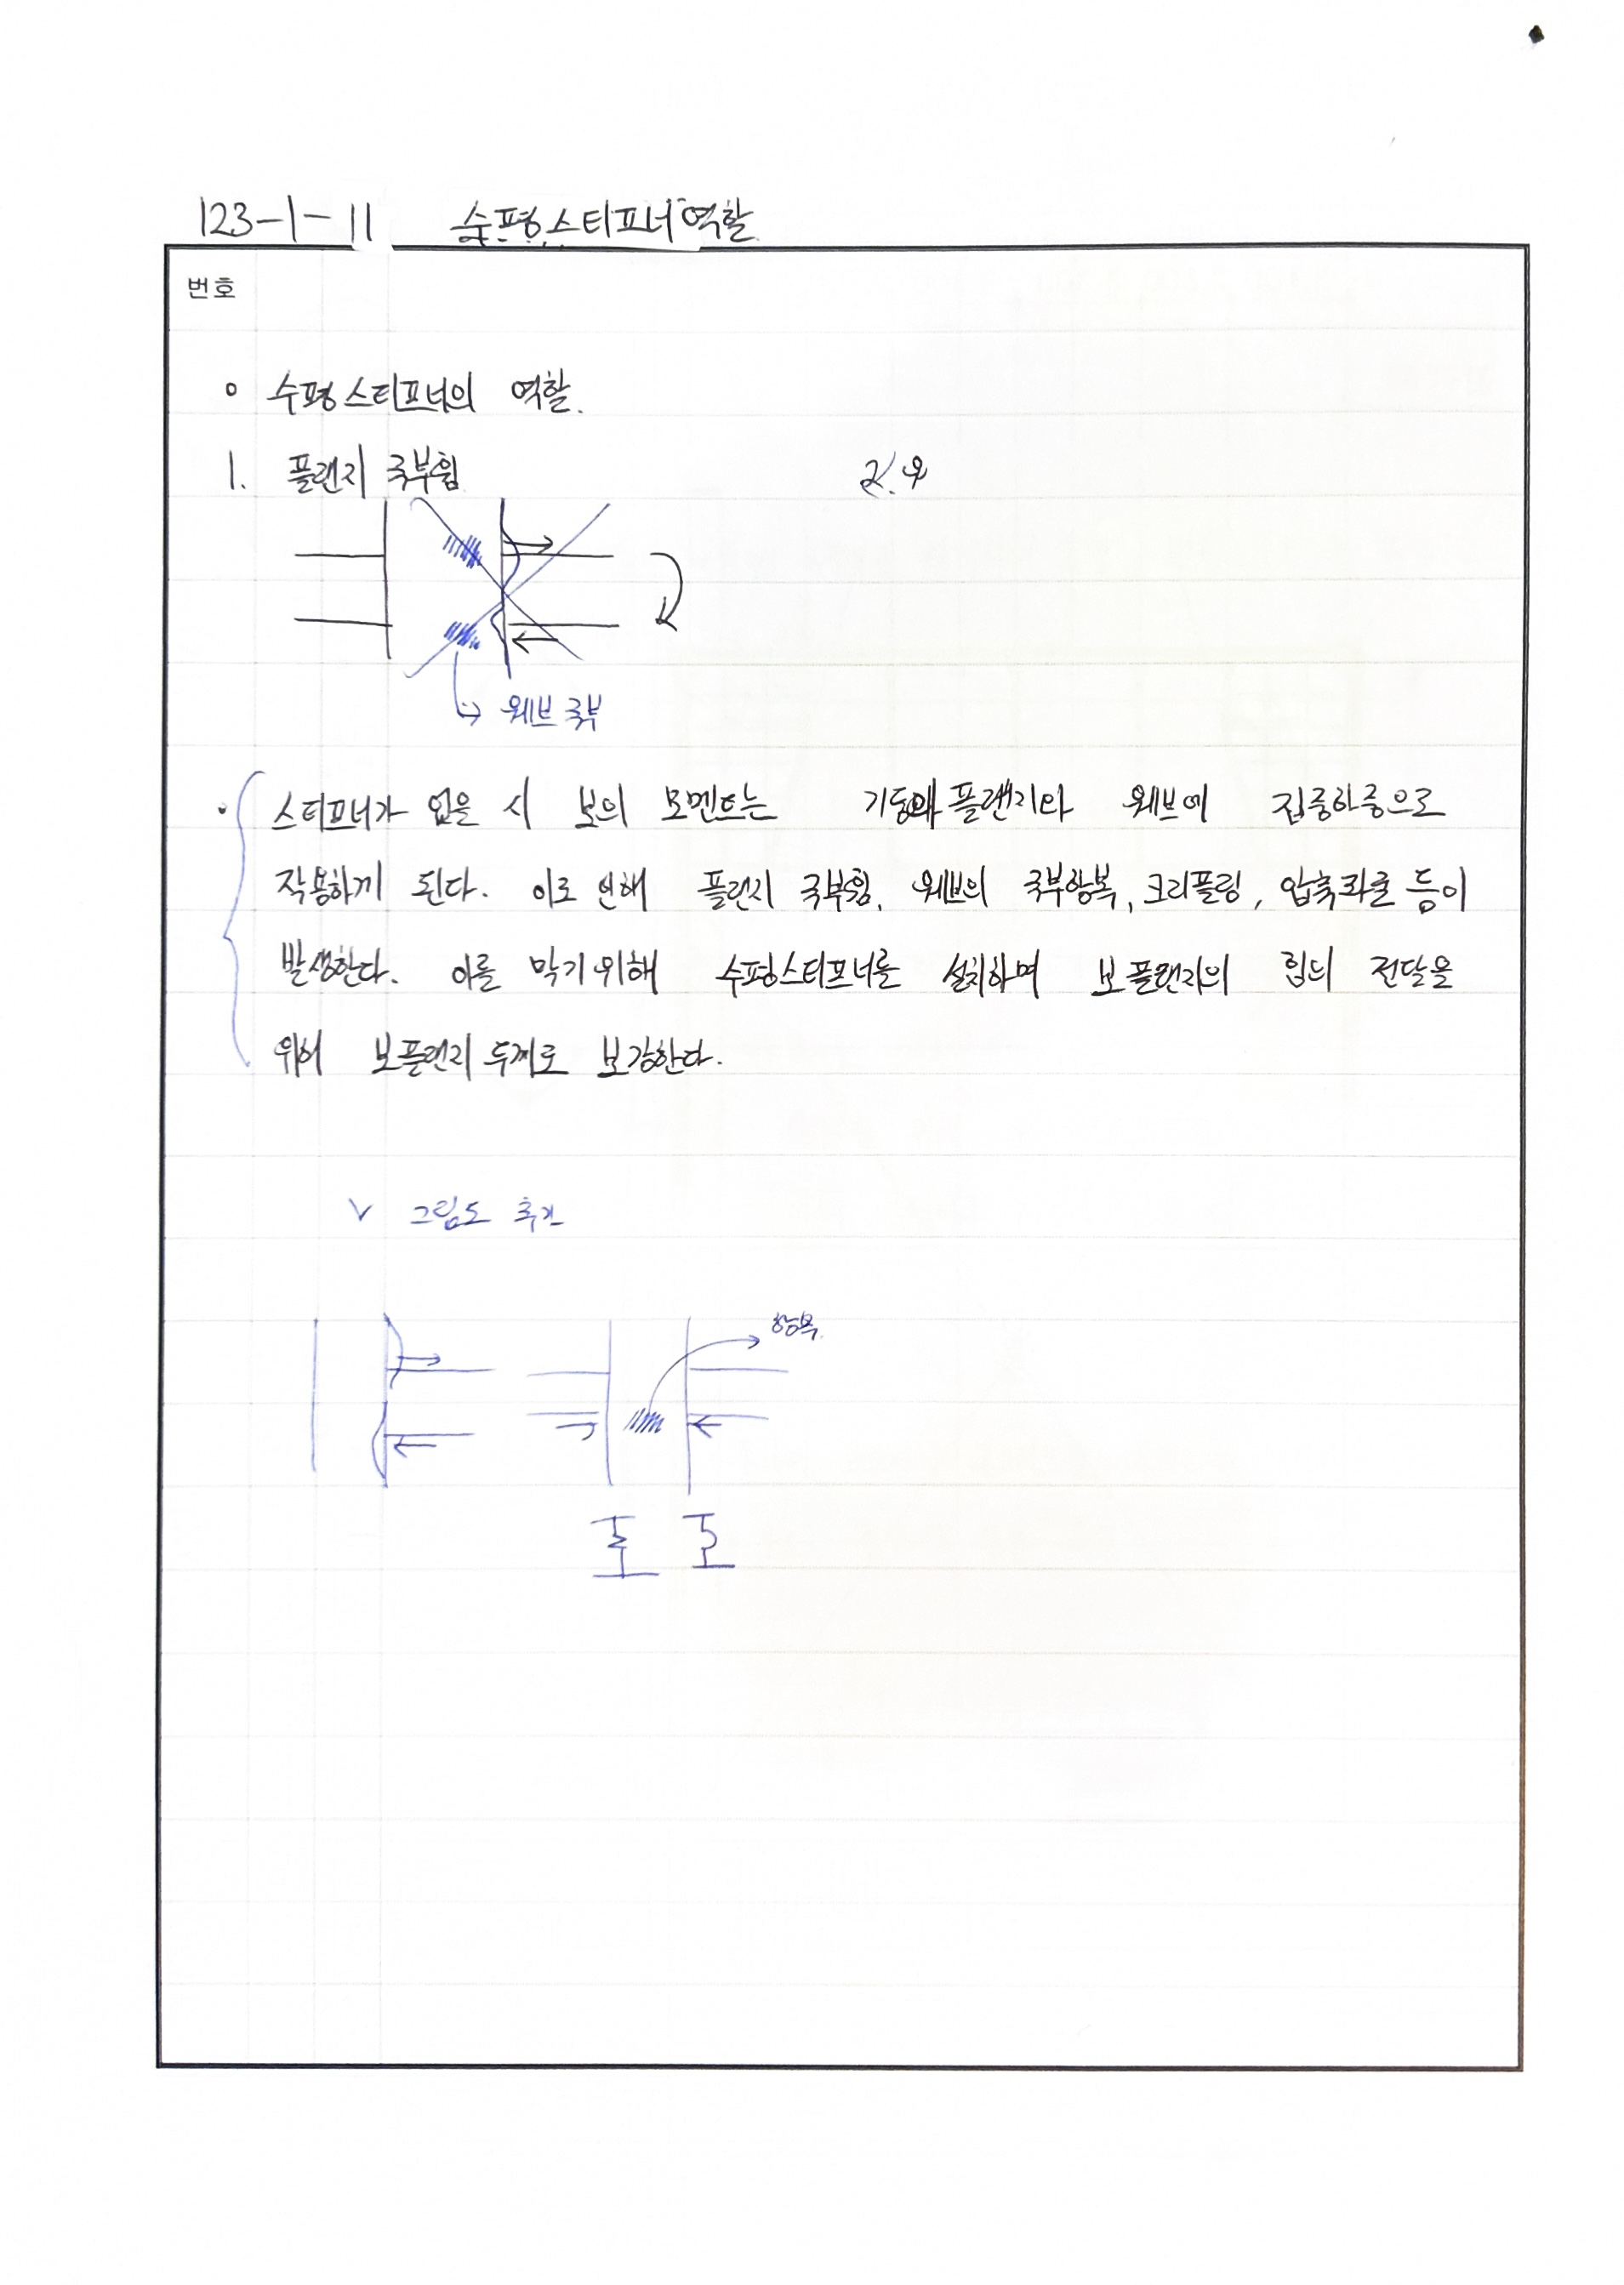 123-1-11 수평스티프너 역할
번호
o 수평스티프너의 역할.
1. 플랜지 국부휨
2.
→ 웨브 국부
· 스티프너가 없을 시 보의 모멘트는 기둥의 플랜지와 웨브에 집중하중으로
작용하게 된다. 이로 인해 플랜지 국부휨, 웨브의 국부항복, 크리플링, 압축좌굴 등이
발생한다. 이를 막기 위해 수평스티프너를 설치하며 보 플랜지의 힘의 전달을
위해 보플랜지 두께로 보강한다.
∨ 그림도 추가
항복